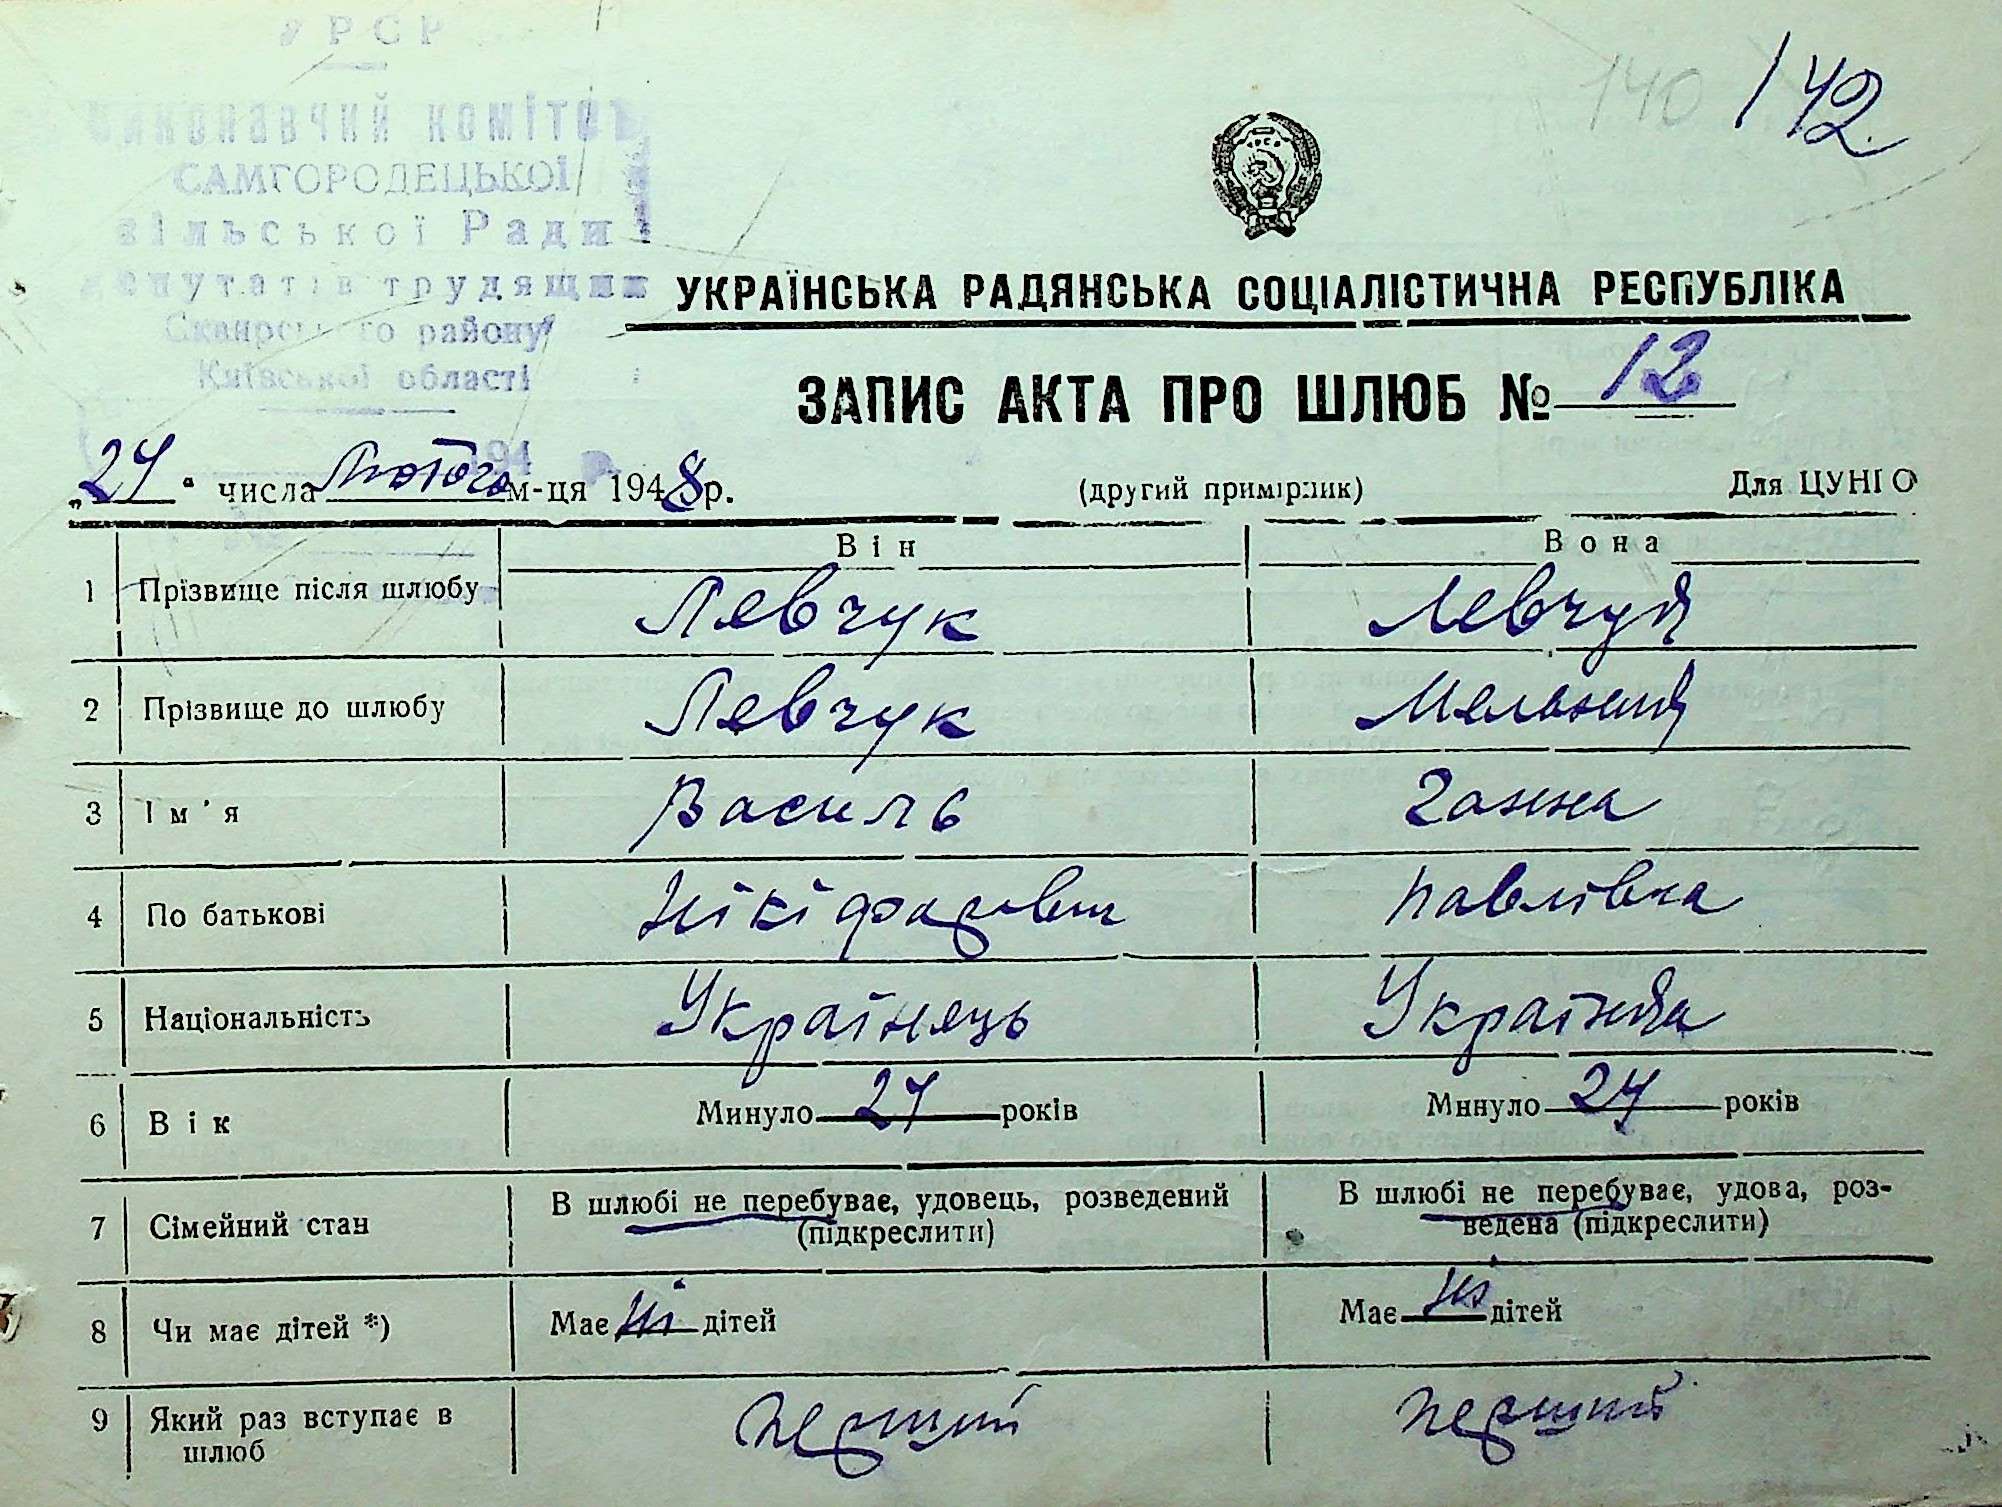 УРСР
Виконавчий комітет
САМГОРОДЕЦЬКОЇ
сільської Ради
депутатів трудящих
Сквирського району
Київської області
194
140 142.
УКРАЇНСЬКА РАДЯНСЬКА СОЦІАЛІСТИЧНА РЕСПУБЛІКА
ЗАПИС АКТА ПРО ШЛЮБ № 12
„24“ числа Лютого м-ця 1948 р. (другий примірник) Для ЦУНГО
Він Вона
1 Прізвище після шлюбу Левчук Левчук
2 Прізвище до шлюбу Левчук Мельник
3 Ім'я Василь Ганна
4 По батькові Нікіфорович Павлівна
5 Національність Українець Українка
6 Вік Минуло 24 років Минуло 24 років
7 Сімейний стан В шлюбі не перебуває, удовець, розведений В шлюбі не перебуває, удова, роз-
(підкреслити) ведена (підкреслити)
8 Чи має дітей *) Має ні дітей Має ні дітей
9 Який раз вступає в перший перший
шлюб